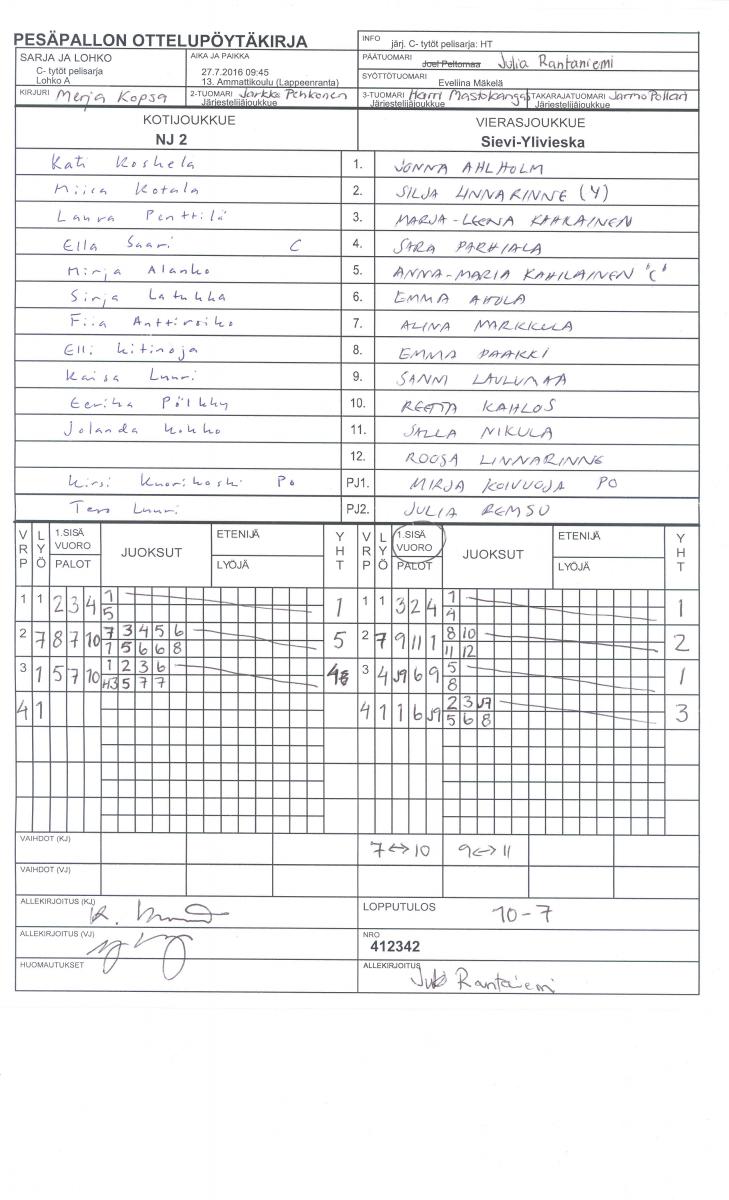 PESÄPALLON OTTELUPÖYTÄKIRJA
INFO järj. C- tytöt pelisarja: HT
SARJA JA LOHKO
C- tytöt pelisarja
Lohko A
AIKA JA PAIKKA
27.7.2016 09:45
13. Ammattikoulu (Lappeenranta)
PÄÄTUOMARI Joel Peltomaa Julia Rantaniemi
SYÖTTÖTUOMARI Eveliina Mäkelä
KIRJURI Merja Kopsa
2-TUOMARI Jarkko Pehkonen
Järjestelijäjoukkue
3-TUOMARI Harri Mastokangas
Järjestelijäjoukkue
TAKARAJATUOMARI Jarmo Pollari
Järjestelijäjoukkue
KOTIJOUKKUE
NJ 2
VIERASJOUKKUE
Sievi-Ylivieska
Kati Koshela 1. JONNA AHLHOLM
Miica Kotala 2. SILJA LINNARINNE (Y)
Laura Penttilä 3. MARJA-LEENA
Ella Saari C 4. SARA PARHIALA
Mirja Alanko 5. ANNA-MARIA KAHILAINEN "C"
Sirja Latukka 6. EMMA AHOLA
Fiia Anttiroiko 7. ALINA MARKKULA
Elli Kitinoja 8. EMMA PAAKKI
Kaisa Luuri 9. SANNI LAULUMAA
Eerika Pölkky 10. REETTA KAHLOS
Jolanda Kokko 11. SALLA NIKULA
12. ROOSA LINNARINNE
Kirsi Kuorikoski Po PJ1. MIRJA KOIVUOJA PO
Tero Luuri PJ2. JULIA REMSU
VRP LYÖ 1.SISÄ VUORO PALOT JUOKSUT ETENIJÄ LYÖJÄ YHT
VRP LYÖ 1.SISÄ VUORO PALOT JUOKSUT ETENIJÄ LYÖJÄ YHT
1 1 2 3 4 1 1
5
1 1 3 2 4 1 1
4
2 7 8 7 10 7 3 4 5 6 5
1 5 6 6 8
2 7 9 11 1 8 10 2
11 12
3 1 5 7 10 1 2 3 6 4
H3 5 7 7
3 4 J9 6 9 5 1
8
4 1
4 1 1 6 J9 2 3 J7 3
5 6 8
VAIHDOT (KJ) 7↔10 9↔11
VAIHDOT (VJ)
ALLEKIRJOITUS (KJ)
LOPPUTULOS 10-7
ALLEKIRJOITUS (VJ)
NRO
412342
HUOMAUTUKSET
ALLEKIRJOITUS Rantaniemi